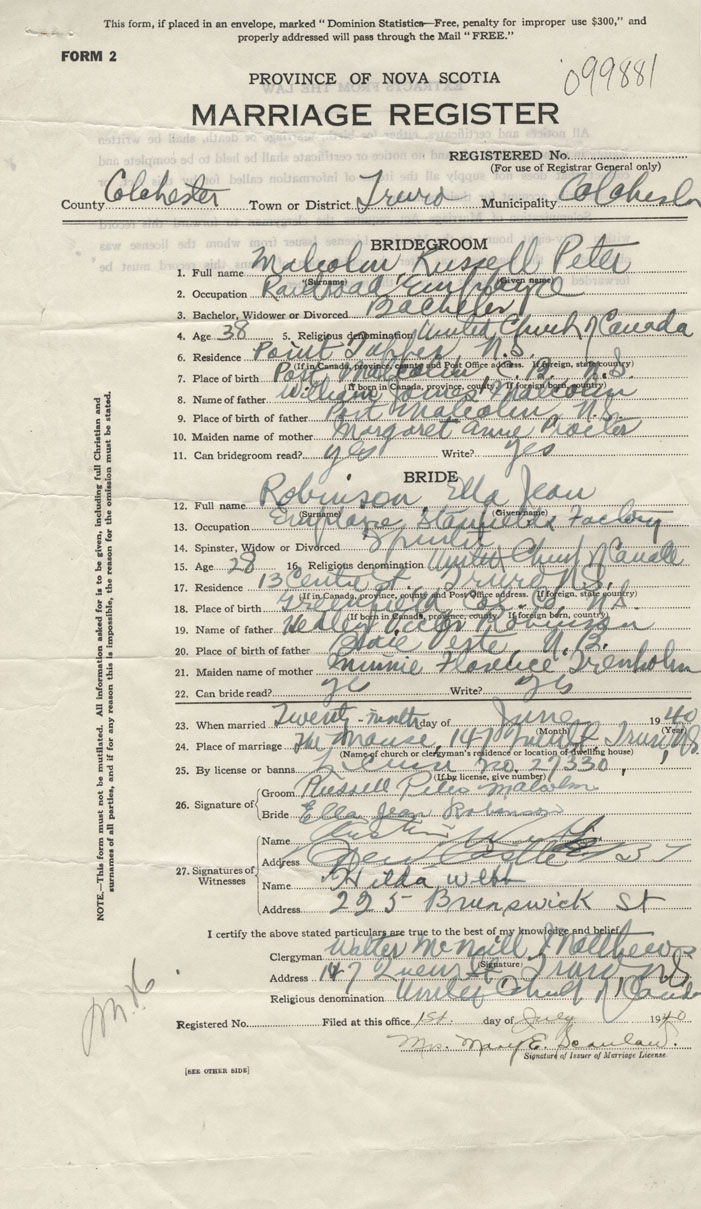 This form, if placed in an envelope, marked " Dominion Statistics—Free, penalty for improper use $300," and
properly addressed will pass through the Mail " FREE."
FORM 2
099881
PROVINCE OF NOVA SCOTIA
MARRIAGE REGISTER
REGISTERED No.
(For use of Registrar General only)
County Colchester Town or District Truro Municipality Colchester
BRIDEGROOM
1. Full name Malcolm, Russell Peter
(Surname) (Given name)
2. Occupation Railroad Employee
3. Bachelor, Widower or Divorced Bachelor
4. Age 38 5. Religious denomination United Church of Canada
6. Residence Point Tupper N.S.
(If in Canada, province, county and Post Office address. If foreign, state country)
7. Place of birth Port Malcolm N.S.
(If born in Canada, province, county. If foreign born, country)
8. Name of father William James Malcolm
9. Place of birth of father Port Malcolm N.S.
10. Maiden name of mother Margaret Anne Proctor
11. Can bridegroom read? yes Write? yes
BRIDE
12. Full name Robinson Ella Jean
(Surname) (Given name)
13. Occupation Employee Stanfields Factory
14. Spinster, Widow or Divorced Spinster
15. Age 28 16. Religious denomination United Church of Canada
17. Residence 13 Centre St. Truro N.S.
(If in Canada, province, county and Post Office address. If foreign, state country)
18. Place of birth Greenfield Col. Co. N.S.
(If born in Canada, province, county. If foreign born, country)
19. Name of father Robinson
20. Place of birth of father N.B.
21. Maiden name of mother Minnie Florence Trenholm
22. Can bride read? yes Write? yes
23. When married Twenty-ninth day of June 1940
(Month) (Year)
24. Place of marriage The Manse, 147 Queen St Truro N.S.
(Name of church or clergyman's residence or location of dwelling house)
25. By license or banns License no. 27330
(If by license, give number)
26. Signature of
Groom Russell Peter Malcolm
Bride Ella Jean Robinson
27. Signatures of Witnesses
Name
Address New Castle
Name Hilda Webb
Address 225 Brunswick St
I certify the above stated particulars are true to the best of my knowledge and belief.
Clergyman Walter McNeill Matthews
(Signature)
Address 147 Queen St Truro N.S.
Religious denomination United Church of Canada
Registered No. Filed at this office 1st. day of July 1940
Mrs. Mary E.
Signature of Issuer of Marriage License
[SEE OTHER SIDE]
NOTE.—This form must not be mutilated. All information asked for is to be given, including full Christian and
surnames of all parties, and if for any reason this is impossible, the reason for the omission must be stated.